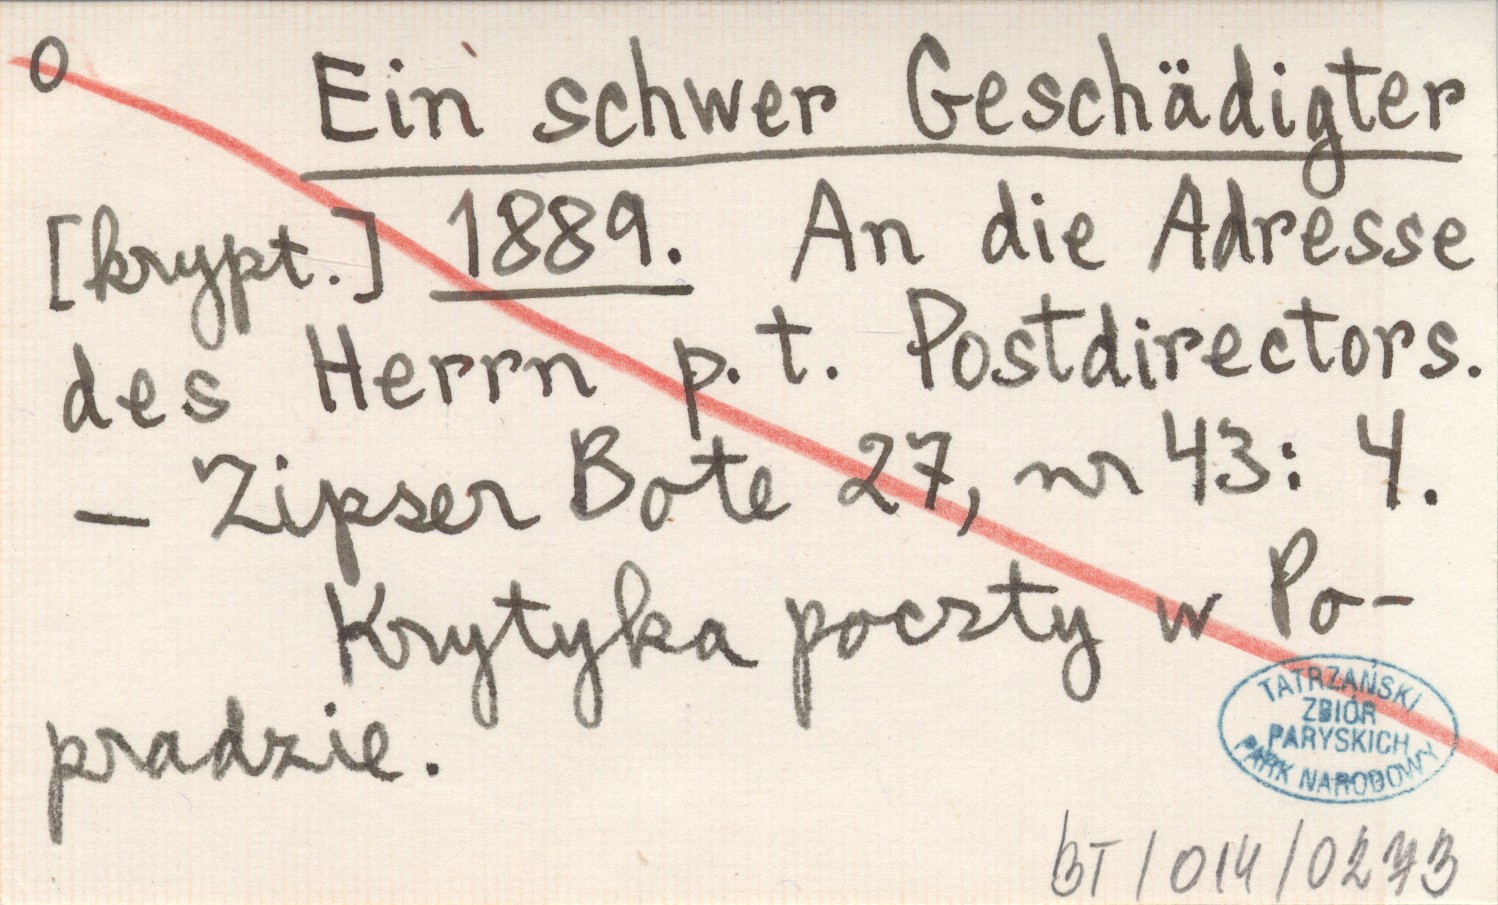 O Ein schwer Geschädigter
[krypt.] 1889. An die Adresse
des Herrn p. t. Postdirectors.
— Zipser Bote 27, nr 43: 4.
Krytyka poczty w Po-
pradzie.
TATRZAŃSKI
ZBIÓR
PARYSKICH
PARK NARODOWY
BT/014/0273